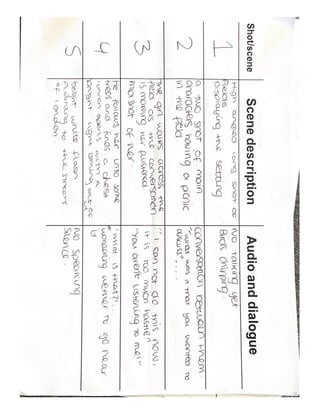 Shot/scene
Scene description
Audio and dialogue
1
High angled long shot of
fields
Displaying the setting
No talking yet
Birds chirping
2
a two shot of main
characters having a picnic
in the field
conversation between them
"what was it that you wanted to
discuss"....
3
the girl walks across the
field as the conversation
is making her pissed
mid shot of her
"I can not do this now,
it is too much hastle"
"You aren't listening to me!"
4
He follows her into some
trees and finds a chest
which opens with a
bright light coming out of
it
"what is that?"..
wondering wether to go near
5
bright white flash
to the streets
of London
No speaking
Silence.